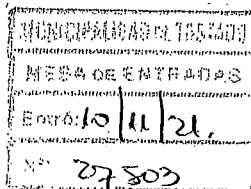 MUNICIPALIDAD DE TOSTADO
MESA DE ENTRADAS
Entró: 10/11/21.
Nº 27803